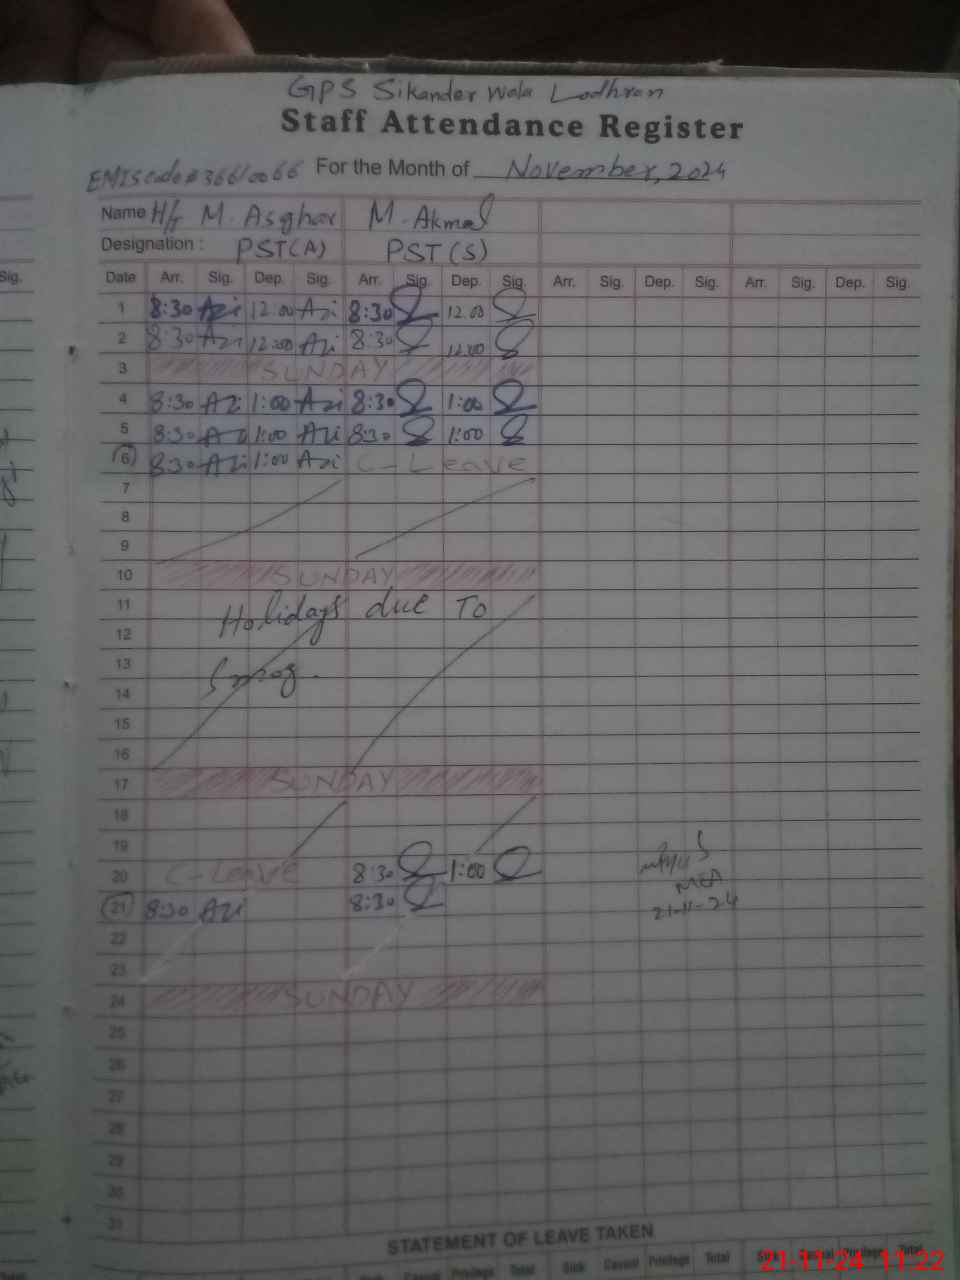 GPS Sikander Wala Lodhran
Staff Attendance Register
EMIS code # 36610066 For the Month of November, 2024
Name H/t M. Asghar M. Akmal
Designation : PST(A) PST(S)
Sig. Date Arr. Sig. Dep. Sig. Arr. Sig. Dep. Sig. Arr. Sig. Dep. Sig. Arr. Sig. Dep. Sig.
1 8:30 Azi 12:00 Azi 8:30 12.00
2 8:30 Azi 12:00 Azi 8:30 12:00
3 SUNDAY
4 8:30 Azi 1:00 Azi 8:30 1:00
5 8:30 Azi 1:00 Azi 8:30 1:00
6 8:30 Azi 1:00 Azi C-Leave
7
8
9
10 SUNDAY
11 Holidays due To
12
13 Smog.
14
15
16
17 SUNDAY
18
19
20 C-Leave 8:30 1:00
MEA
21 8:30 Azi 8:30 21-11-24
22
23
24 SUNDAY
25
26
27
28
29
30
31
STATEMENT OF LEAVE TAKEN
Sick Casual Privilege Total Sick Casual Privilege Total Sick Casual Privilege Total
21-11-24 11:22